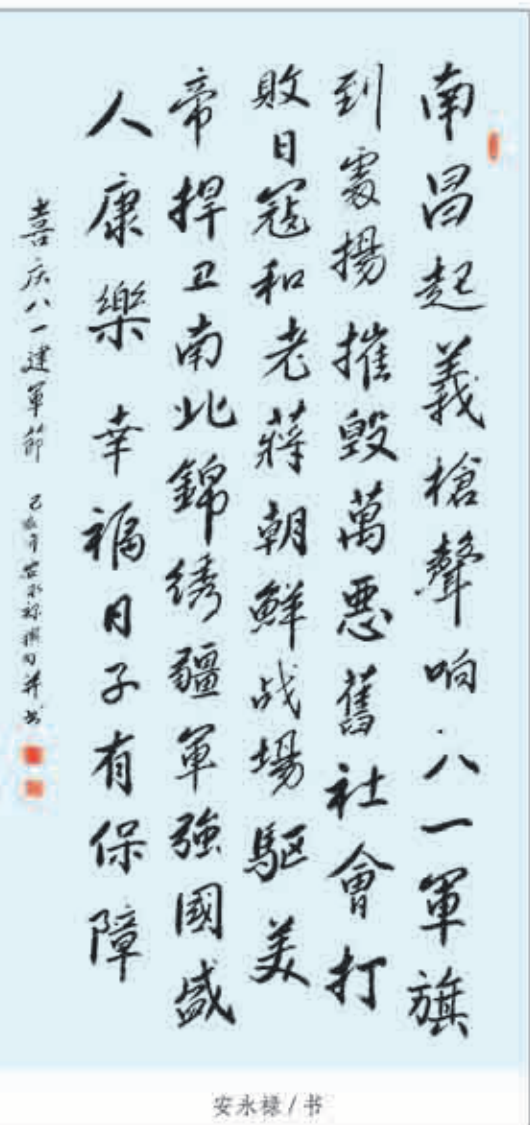 南昌起義槍聲响八一軍旗
到處揚摧毁萬惡舊社會打
敗日寇和老蔣朝鮮战場驅美
帝捍卫南北錦绣疆軍強國盛
人康樂幸福日子有保障
喜庆八一建軍節 己亥年安永禄撰句并书
安永禄/书